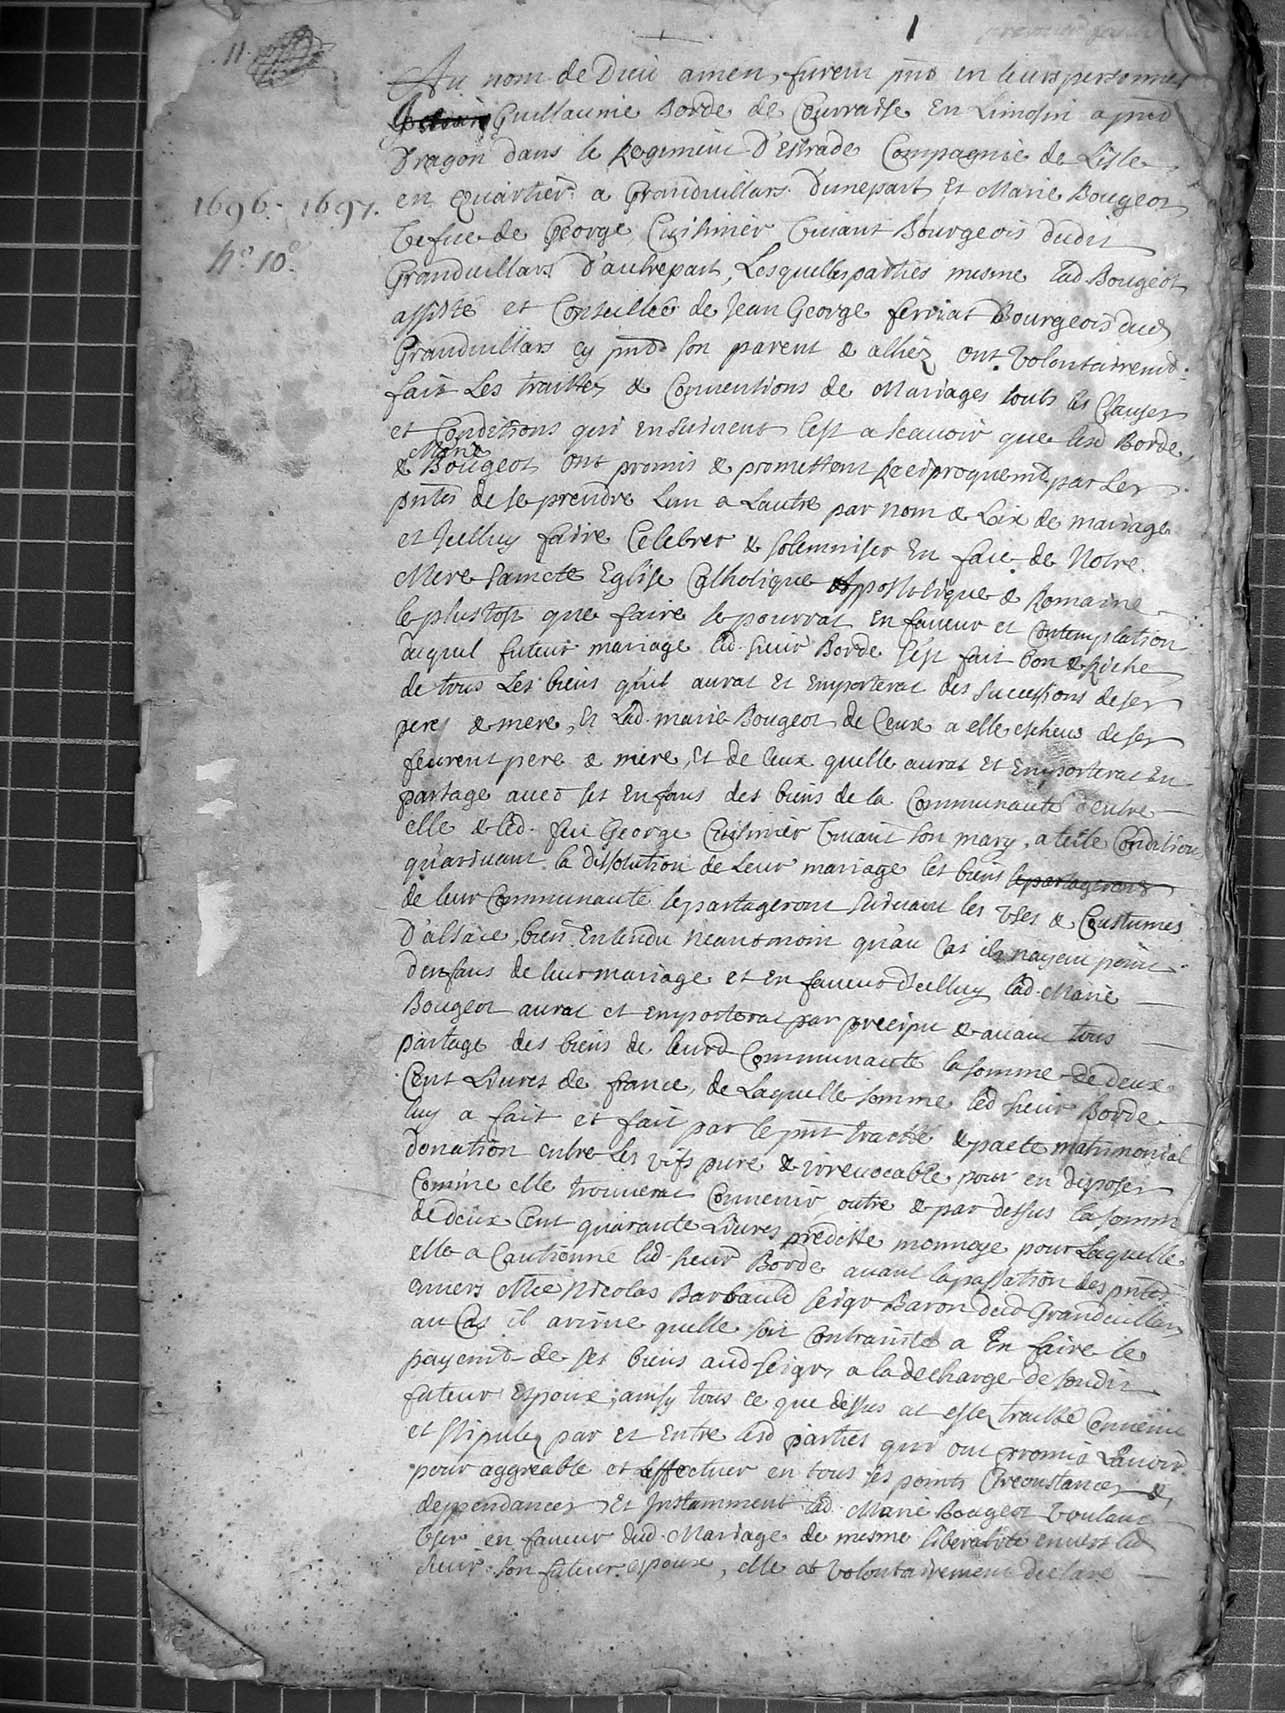 11.
1
premier feuille
Au nom de Dieu amen, furent pnts en leurs personnes
Guillaume Borde de Courraisse En Limosin a pnt
Dragon dans le Regiment D'Estrade Compagnie de Lisle
en Quartier a Granduillars d'unepart, Et Marie Bougeot
1696. 1697.
Vefue de George Cuisinier viuant Bourgeois dudit
No 10.
Granduillars d'autrepart, Lesquelles parties mesme lad. Bougeot
assisté et Conseillée de Jean George ferriat Bourgeois dud
Granduillars cy pnt son parent & alliez ont Volontairemt.
fait Les traittés & Conuentions de Mariages soubs les Clauses
et Conditions qui ensuiuent C'est a scauoir que lesd Borde
Marie
& Bougeot ont promis & promettent Reciproquemt. par Les
pntes de se prendre Lun & Lautre par nom & Loix de mariage
et Jcelluy faire Celebrer & solemniser En face de Notre
Mere saincte Eglise Catholique Appostolique & Romaine
le plustost que faire se pourrat en faueur et Contemplation
duquel futeur mariage led. sieur Borde s'est fait bon & Riche
de tous Les biens qu'il aurat Et Emporterat des successions de ses
pere & mere, Et Lad. marie Bougeot de Ceux a elle escheus de ses
feurent pere & mere, Et de Ceux quelle aurat et Emporterat En
partage auec ses Enfans des biens de la Communauté d'entre
elle & led. feu George Cuisinier viuant son mary, a telle Condition
qu'ariuant la dissolution de Leur mariage les biens se partageront
de leur Communauté se partageront suiuant les Vses & Coustumes
D'alsace, bien Entendu neantmoin qu'au Cas ils n'ayent point
d'enfans de leur mariage et en faueur d'Icelluy lad. Marie
Bougeot aurat et emporterat par precipu & auant tous
partage des biens de leurd Communauté la somme de deux
Cent Liures de france, de Laquelle somme led sieur Borde
luy a fait et fait par le pnt traitté & pacte matrimonial
donation entre les vifs pure & irreuocable pour en disposer
Comme elle trouuerat Conuenir, outre & par dessus la somme
de deux Cent quarante Liures preditte monnoye pour Laquelle
elle a Cautionné led. sieur Borde auant la passation des pntes
enuers Mre Nicolas Barbauld seigr Baron dud Granduillars
au Cas il ariue quelle soit Contrainte a En faire le
payemt de ses biens aud seigr, a la decharge de sondit
futeur Espoux, ainsy tous ce que dessus at esté traitté Conuenu
et stipulez par et Entre lesd parties qui ont promis L'auoir
pour aggreable et effectuer en tous ses points Circonstances &
deppendances, Et Instamment lad. Marie Bougeot voulant
Vser en faueur dud Mariage de mesme liberalité enuers led
sieur son futeur espoux, elle at volontairement declaré